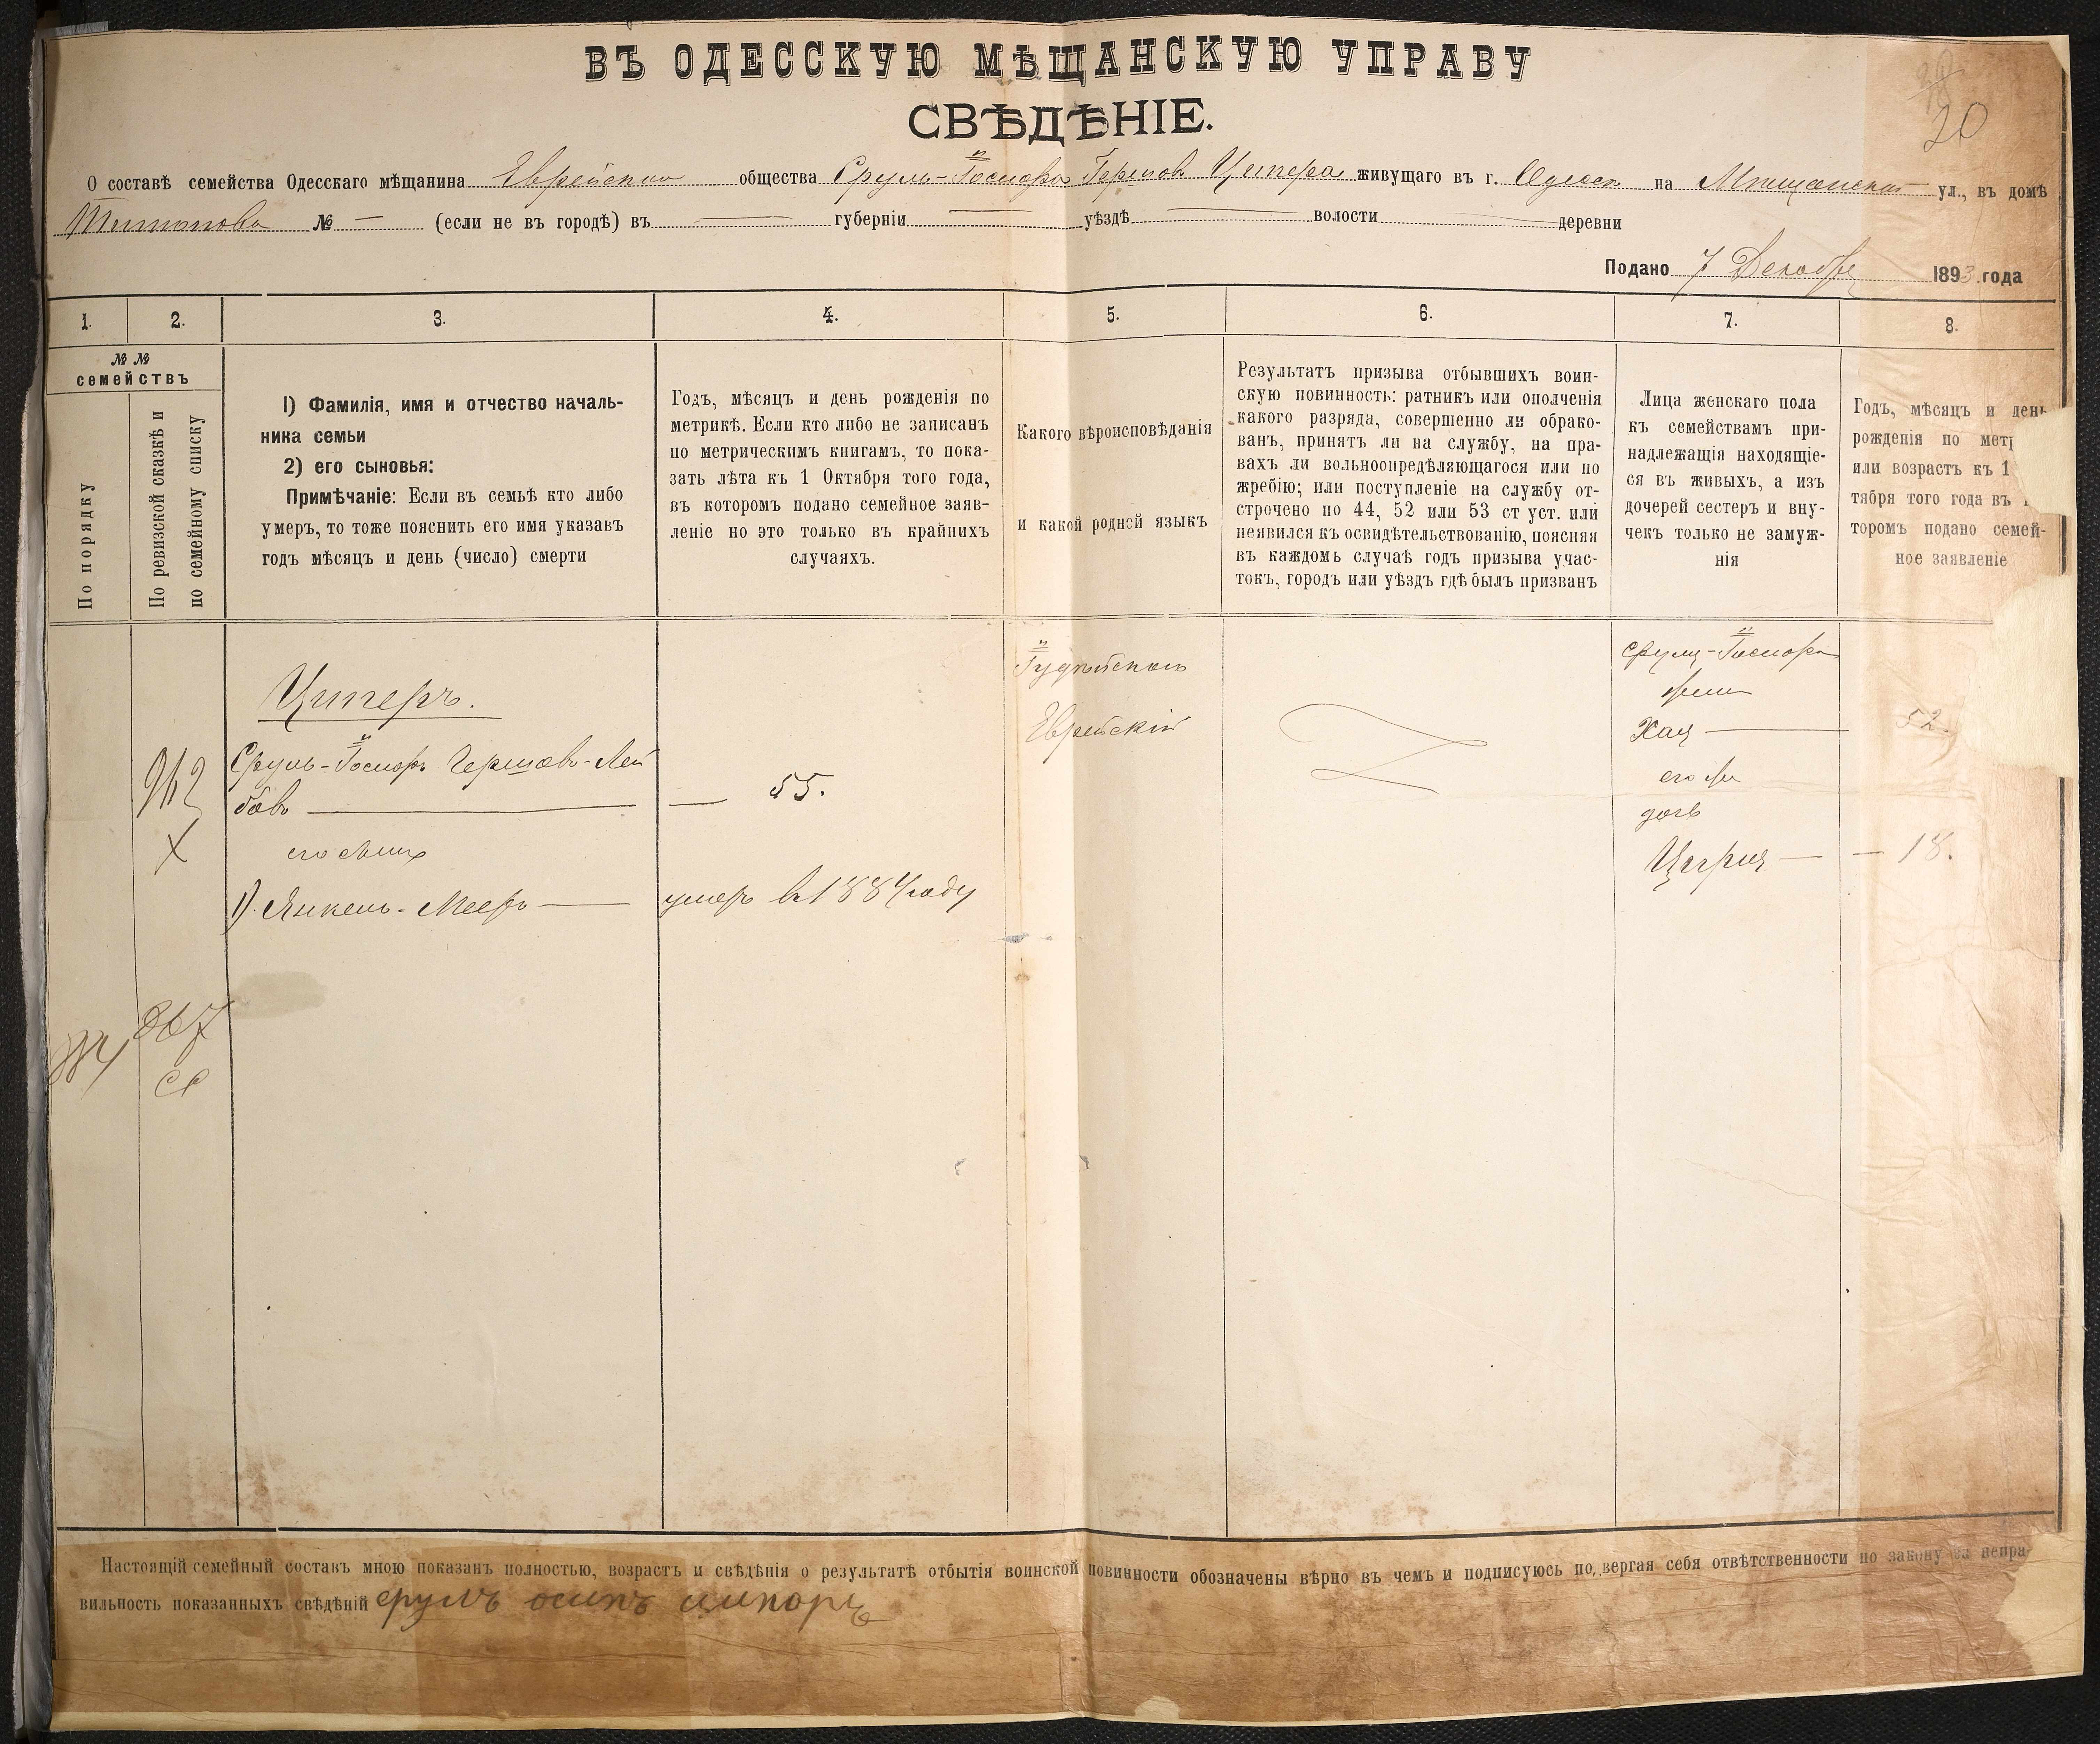 20
ВЪ ОДЕССКУЮ МѢЩАНСКУЮ УПРАВУ
СВѢДѢНІЕ.
О составѣ семейства Одесскаго мѣщанина Еврейскаго общества Сруль-Іосифа Гершова Ципера живущаго въ г. Одессѣ на Мѣщанской ул., въ домѣ
№ — (если не въ городѣ) въ — губерніи — уѣздѣ — волости — деревни
Подано 7 Декабря 1893 года
1. 2. 3. 4. 5. 6. 7. 8.
№ №
семействъ
По порядку
По ревизской сказкѣ и
по семейному списку
1) Фамилія, имя и отчество началь-
ника семьи
2) его сыновья:
Примѣчаніе: Если въ семьѣ кто либо
умеръ, то тоже пояснить его имя указавъ
годъ мѣсяцъ и день (число) смерти
Годъ, мѣсяцъ и день рожденія по
метрикѣ. Если кто либо не записанъ
по метрическимъ книгамъ, то пока-
зать лѣта къ 1 Октября того года,
въ которомъ подано семейное заяв-
леніе но это только въ крайнихъ
случаяхъ.
Какого вѣроисповѣданія
и какой родной языкъ
Результатъ призыва отбывшихъ воин-
скую повинность: ратникъ или ополченія
какого разряда, совершенно ли обрако-
ванъ, принятъ ли на службу, на пра-
вахъ ли вольноопредѣляющагося или по
жребію; или поступленіе на службу от-
строчено по 44, 52 или 53 ст уст. или
неявился къ освидѣтельствованію, поясняя
въ каждомъ случаѣ годъ призыва учас-
токъ, городъ или уѣздъ гдѣ былъ призванъ
Лица женскаго пола
къ семействамъ при-
надлежащія находящіе-
ся въ живыхъ, а изъ
дочерей сестеръ и вну-
чекъ только не замуж-
нія
Годъ, мѣсяцъ и день
рожденія по мет
или возрастъ къ 1
тября того года въ
торомъ подано семей-
ное заявленіе
Циперъ.
942
Х
Сруль-Іосифъ Гершовъ-Лей
бовъ — 55.
его сынъ
1) Янкель-Мееръ — умеръ въ 1884 году
Іудейскаго
Еврейскій
Сруля-Іосифа
жена
Хая — 52.
его же
дочь
— 18.
867
Настоящій семейный составъ мною показанъ полностью, возрастъ и свѣдѣнія о результатѣ отбытія воинской повинности обозначены вѣрно въ чемъ и подписуюсь подвергая себя отвѣтственности по закону за непра-
вильность показанныхъ свѣдѣній срулъ осипъ ципоръ